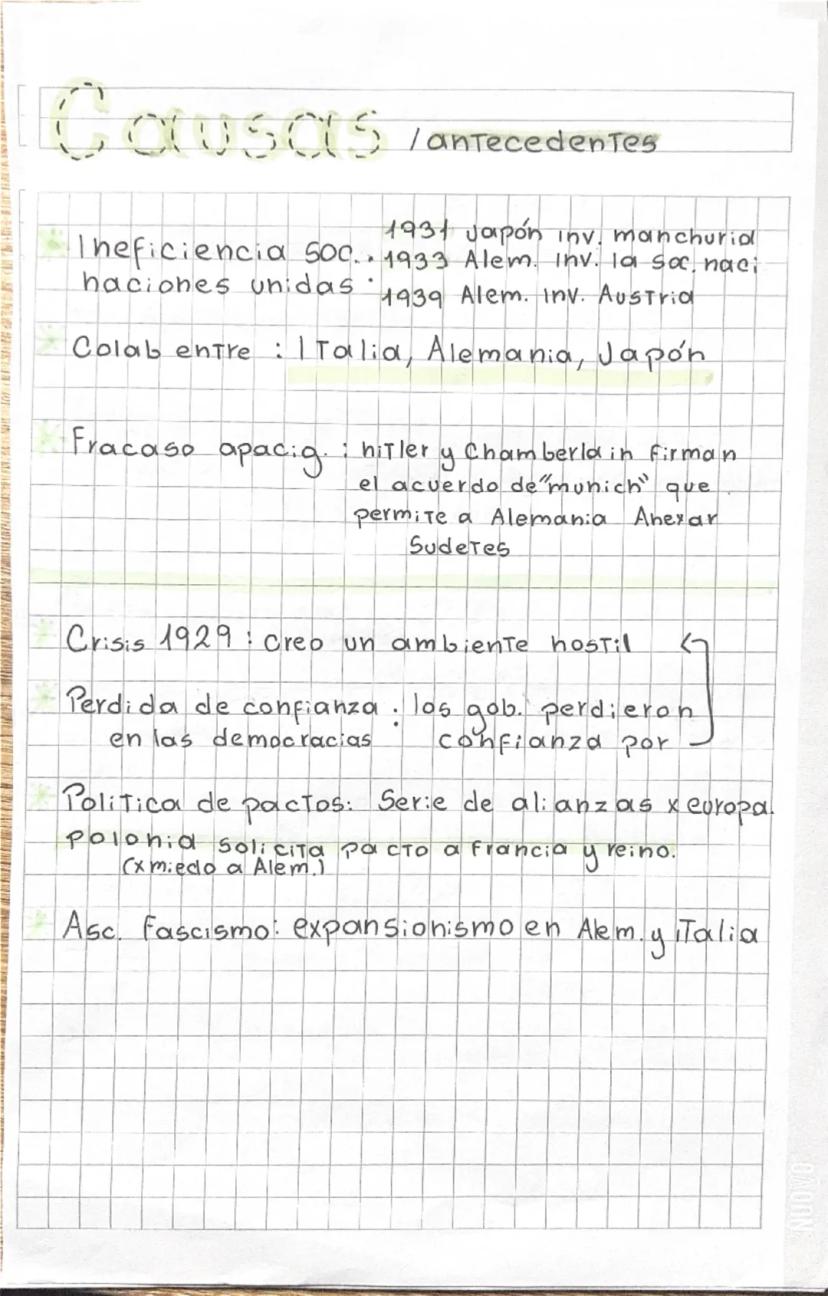 Causas / antecedentes
1931 Japón inv. manchuria
Ineficiencia soc. : 1933 Alem. inv. la soc. naci
naciones unidas 1939 Alem. inv. Austria
Colab entre : Italia, Alemania, Japón
Fracaso apacig. : hitler y Chamberlain firman
el acuerdo de "munich" que
permite a Alemania Anexar
Sudetes
Crisis 1929 : creo un ambiente hostil
Perdida de confianza : los gob. perdieron
en las democracias confianza por
Politica de pactos: Serie de alianzas x europa.
polonia solicita pacto a francia y reino.
(x miedo a Alem.)
Asc. fascismo: expansionismo en Alem. y italia
NUOVO